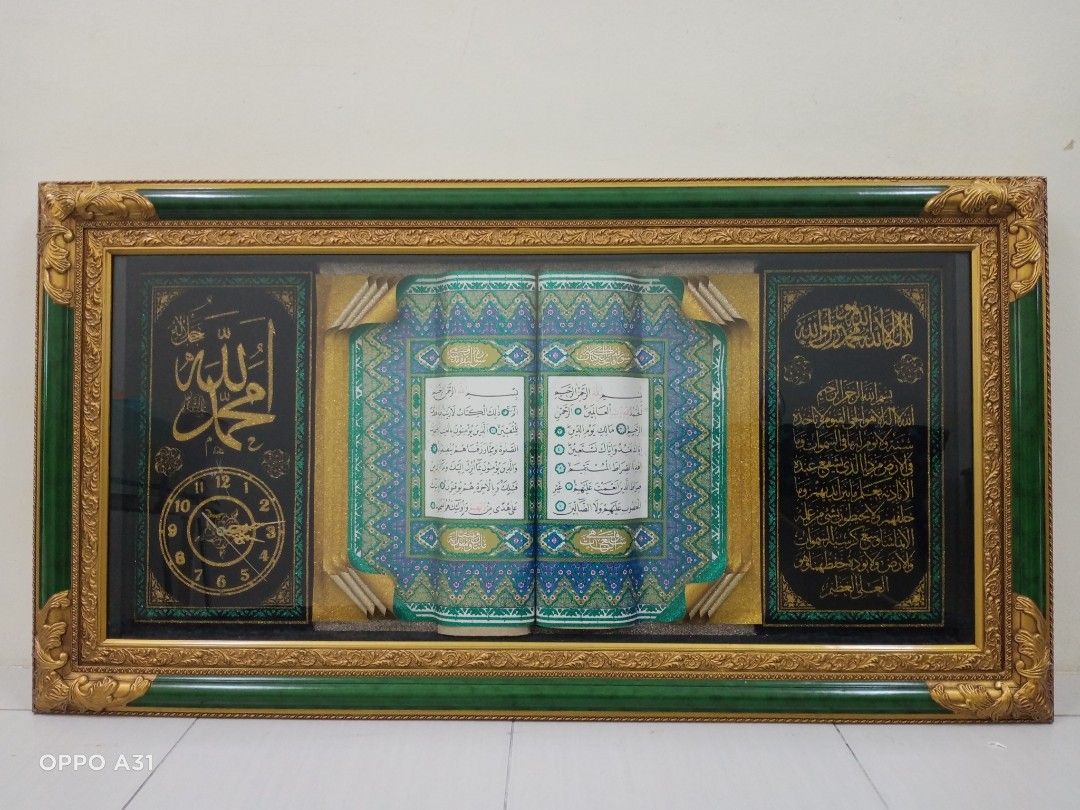 جل جلاله
الله
محمد
12
1
2
3
4
5
6
7
8
9
10
11
بسم الله الرحمن الرحيم
الحمد لله رب العالمين الرحمن
الرحيم مالك يوم الدين
اياك نعبد واياك نستعين
اهدنا الصراط المستقيم
صراط الذين انعمت عليهم غير
المغضوب عليهم ولا الضالين
بسم الله الرحمن الرحيم
الم ذلك الكتاب لا ريب فيه هدى
للمتقين الذين يؤمنون بالغيب ويقيمون
الصلوة ومما رزقناهم ينفقون
والذين يؤمنون بما انزل اليك وما انزل من
قبلك وبالآخرة هم يوقنون اولئك
على هدى من ربهم واولئك هم المفلحون
لا اله الا الله محمد رسول الله
بسم الله الرحمن الرحيم
الله لا اله الا هو الحي القيوم لا تأخذه
سنة ولا نوم له ما في السموات وما
في الارض من ذا الذي يشفع عنده
الا باذنه يعلم ما بين ايديهم وما
خلفهم ولا يحيطون بشيء من علمه
الا بما شاء وسع كرسيه السموات
والارض ولا يؤده حفظهما وهو
العلي العظيم
OPPO A31